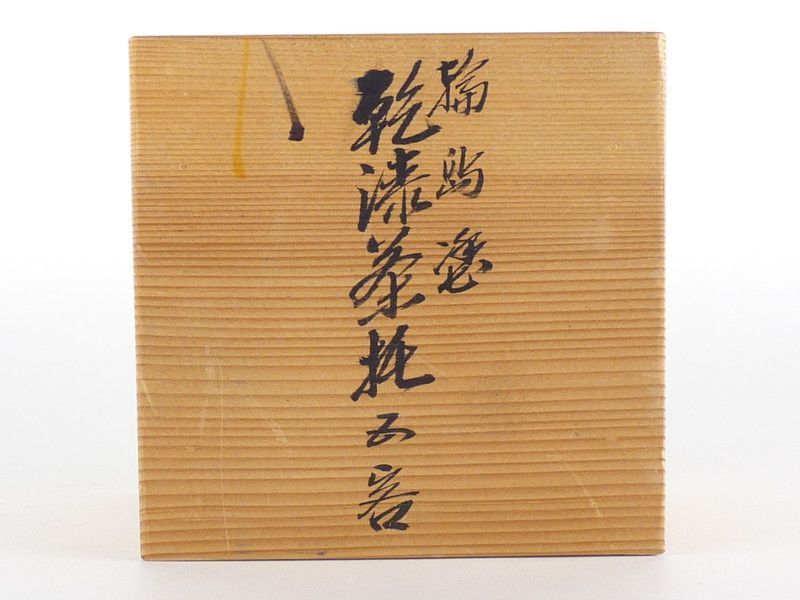 輪島塗
乾漆茶托五客